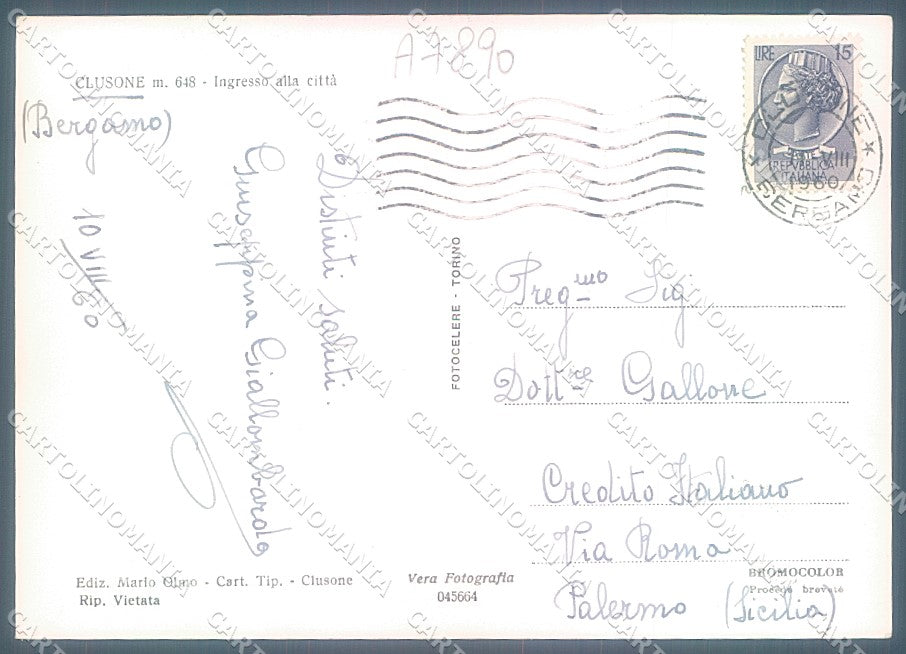 A7890
CLUSONE m. 648 - Ingresso alla città
(Bergamo)
10 VIII 60
Distinti saluti.
Giuseppina Giallombardo
FOTOCELERE - TORINO
LIRE 15
REPVBBLICA
ITALIANA
VIII
1960
* BERGAMO *
Preg.mo Sig
Dott.re Gallone
Credito Italiano
Via Roma
Palermo (Sicilia)
Ediz. Mario Olmo - Cart. Tip. - Clusone
Rip. Vietata
Vera Fotografia
045664
BROMOCOLOR
Procede brevete
CARTOLINOMANIA